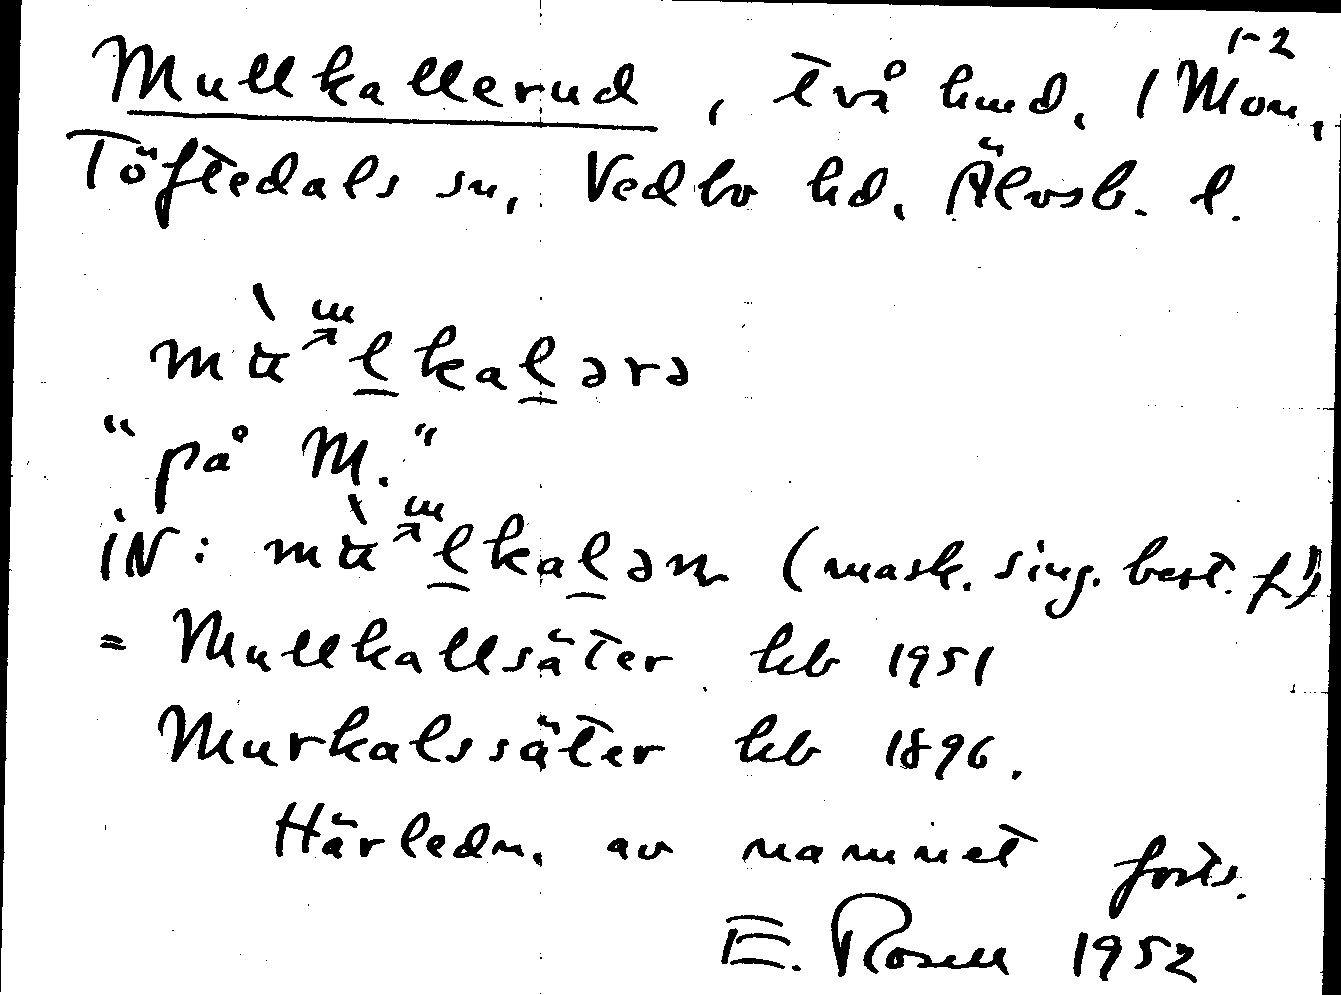 Mullkallerud, två hmd. (Mon, 1-2
Töftedals sn, Vedbo hd. Älvsb. l.
mùlkalərə
"på M."
iN: mùlkalən (mask. sing. best. f.)
= Mullkallsäter kb 1951
Murkalssäter kb 1896.
Härledn. av namnet forts.
E. Rosell 1952